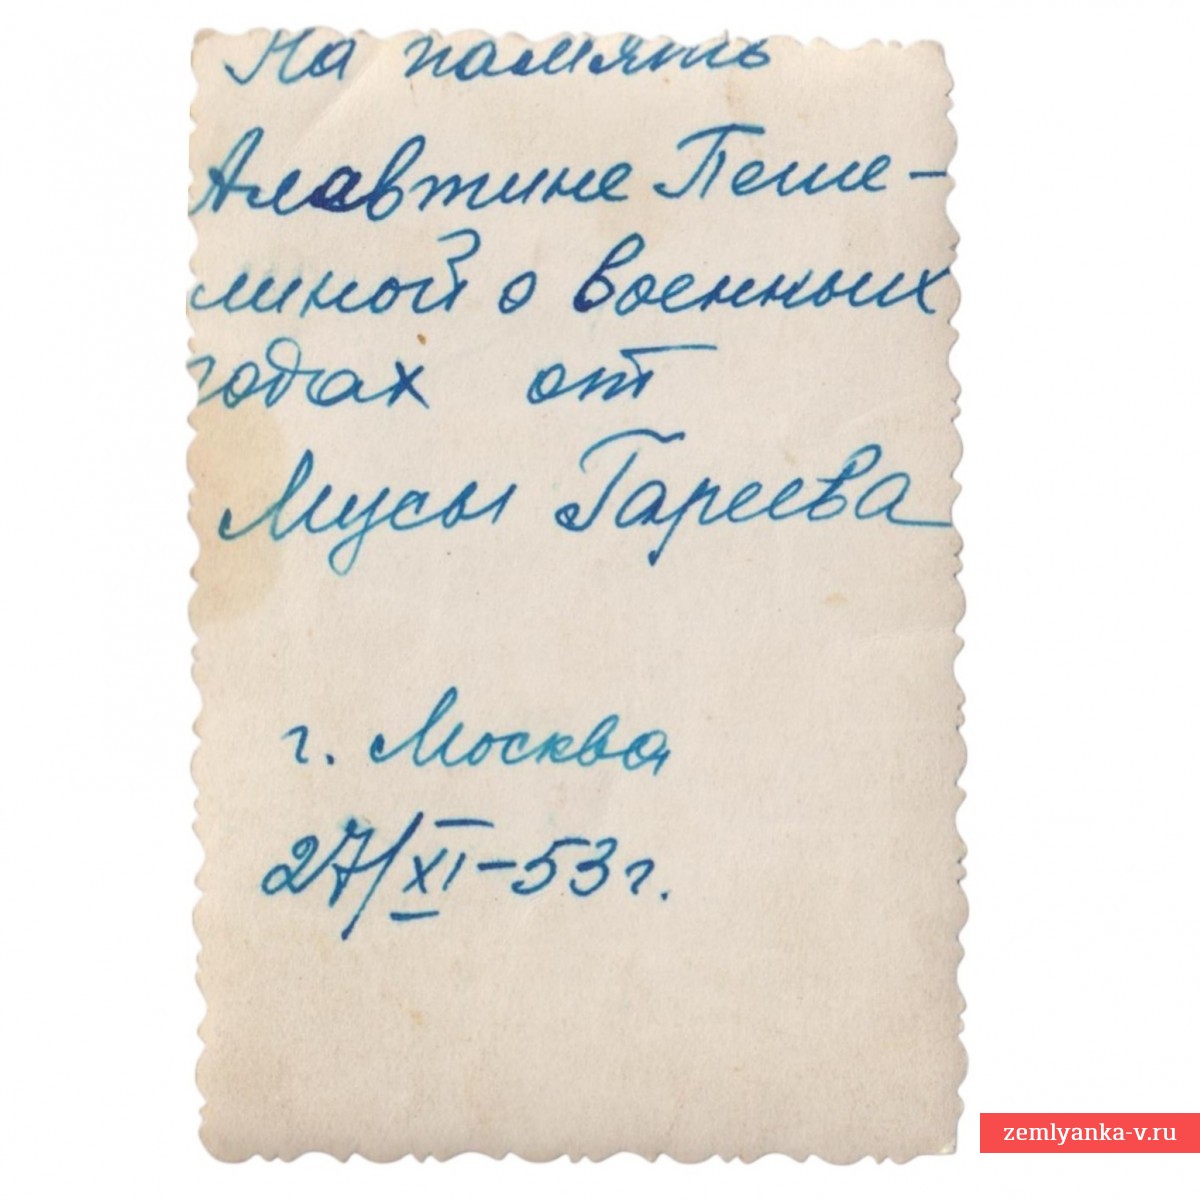 На память
Алавтине Пеше-
линой о военных
годах от
Мусы Гареева
г. Москва
27/XI-53г.
zemlyanka-v.ru